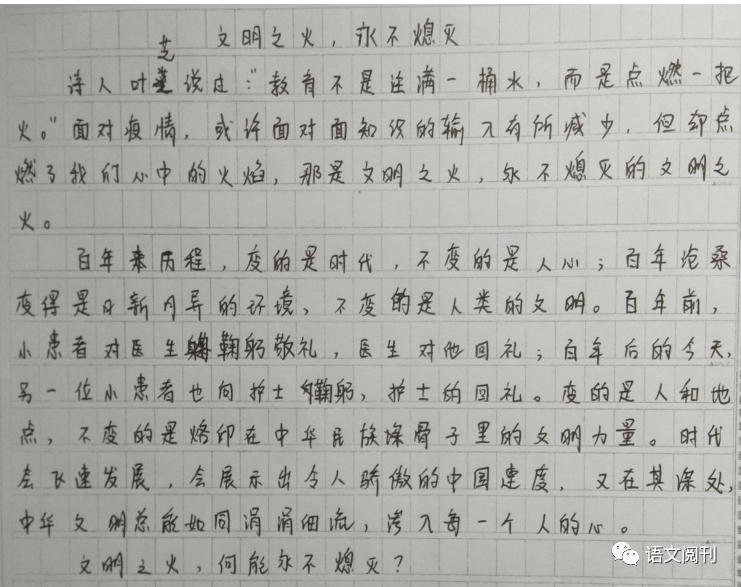 文明之火，永不熄灭
诗人叶芝说过："教育不是注满一桶水，而是点燃一把
火。"面对疫情，或许面对面知识的输入有所减少，但却点
燃了我们心中的火焰，那是文明之火，永不熄灭的文明之
火。
百年来历程，变的是时代，不变的是人心；百年沧桑
变得是日新月异的环境，不变的是人类的文明。百年前，
小患者对医生鞠躬敬礼，医生对他回礼；百年后的今天，
另一位小患者也向护士鞠躬，护士的回礼。变的是人和地
点，不变的是烙印在中华民族深骨子里的文明力量。时代
会飞速发展，会展示出令人骄傲的中国速度，又在其深处，
中华文明总能如同涓涓细流，渗入每一个人的心。
文明之火，何能永不熄灭？
语文阅刊